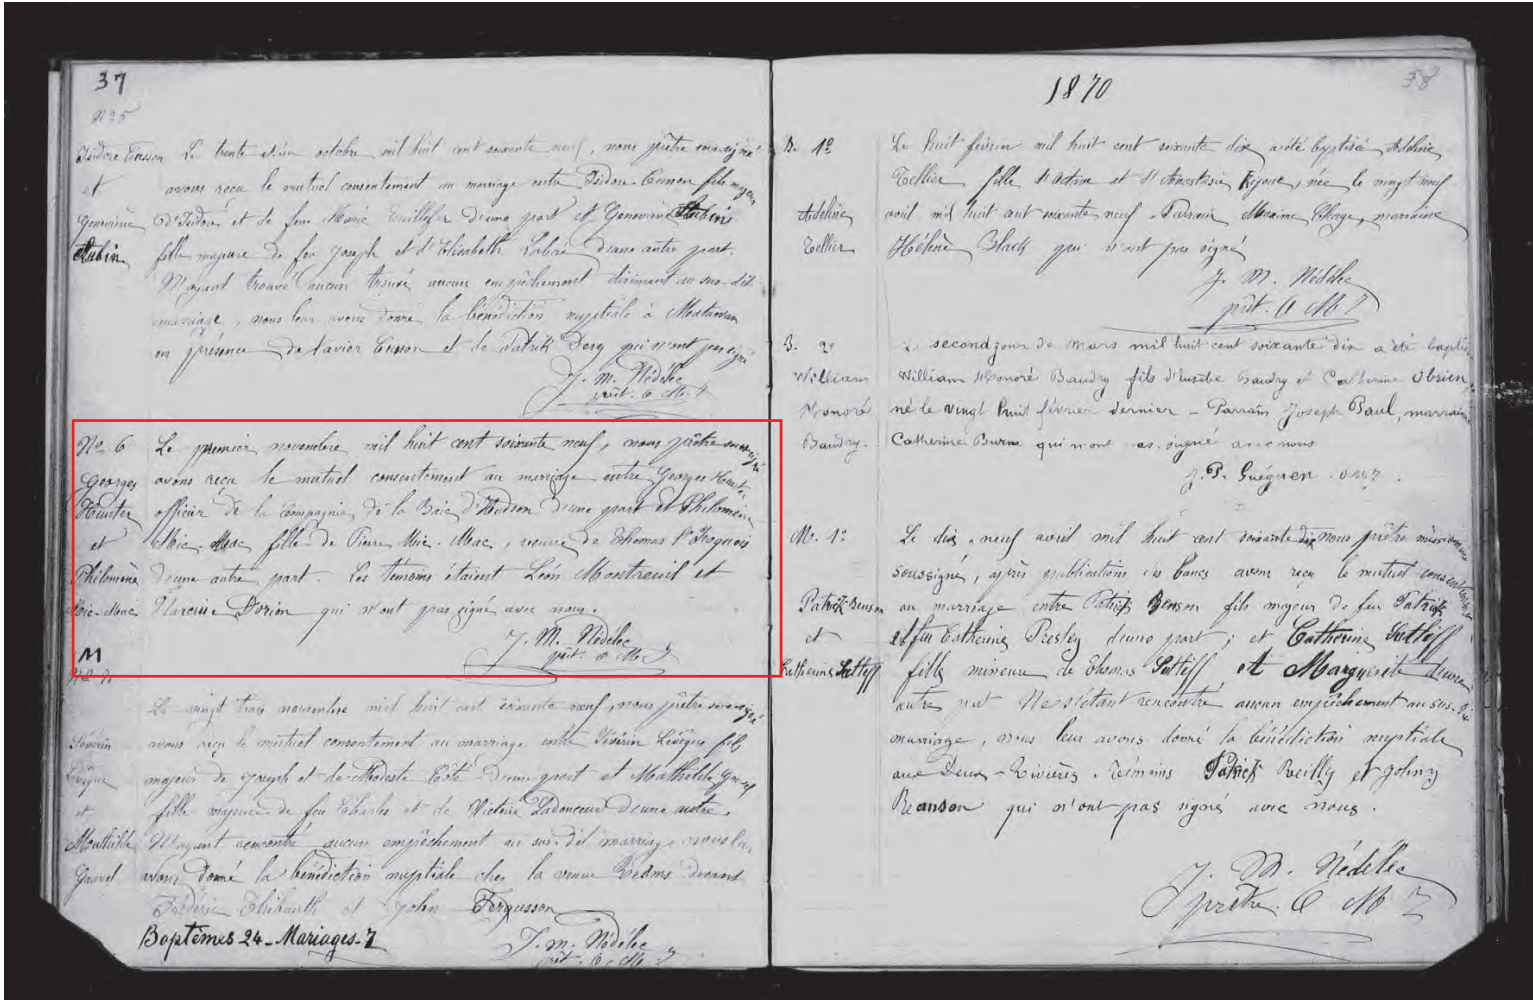 37
No 5
Isidore Cusson
et
Geneviève
Aubin
Le trente et un octobre mil huit cent soixante neuf, nous prêtre soussigné
avons reçu le mutuel consentement au mariage entre Isidore Cusson fils majeur
d'Isidore et de feue Marie d'une part et Geneviève Aubin
fille majeure de feu Joseph et d'Elisabeth Labrie d'une autre part.
N'ayant trouvé aucun trouvé aucun empêchement dirimant au sus-dit
mariage, nous leur avons donné la bénédiction nuptiale à Mattawan
en présence de Xavier Cusson et de Patrick Dery qui n'ont pas signé
J. M. Nédélec
prêt. O M I
No 6
Georges
Hunter
et
Philomène
Mic-Mac
M
Le premier novembre mil huit cent soixante neuf, nous prêtre soussigné
avons reçu le mutuel consentement au mariage entre Georges Hunter
officier de la Compagnie de la Baie d'Hudson d'une part et Philomène
Mic-Mac fille de Pierre Mic-Mac, veuve de Thomas l'Iroquois
d'une autre part. Les témoins étaient Léon Montreuil et
Narcisse Dorion qui n'ont pas signé avec nous.
J. M. Nédélec
prêt. O M I
Séverin
Lévêque
et
Mathilde
Gravel
Le vingt trois novembre mil huit cent soixante neuf, nous prêtre soussigné
avons reçu le mutuel consentement au marriage entre Séverin Lévêque fils
majeur de Joseph et de Modeste Côté d'une part et Mathilde Gravel
fille majeure de feu Charles et de Victoire Ladouceur d'une autre.
N'ayant rencontré aucun empêchement au sus-dit marriage nous leur
avons donné la bénédiction nuptiale chez la veuve devant
Frédéric Thibault et John Fergusson
Baptêmes 24 - Mariages - 7
J. M. Nédélec
prêt. O. M. I
1870
38
B. 1o
Adeline
Tellier
Le huit février mil huit cent soixante dix a été baptisée Adeline
Tellier fille d'Active et d'Anastasie née le vingt neuf
août mil huit cent soixante neuf - Parrain Maxime marraine
Hélène Black qui n'ont pas signé
J. M. Nédélec
prêt. O M I
B. 2o
William
Honoré
Baudry.
Le second jour de mars mil huit cent soixante dix a été baptisé
William Honoré Baudry fils d'Eusèbe Baudry et Catherine Obrien,
né le vingt huit février dernier - Parrain Joseph Paul, marraine
Catherine Burns qui n'ont pas signé avec nous
J. P. Guéguen O M I.
M. 1o
Patrick Benson
et
Catherine Sutliff
Le dix-neuf avril mil huit cent soixante dix nous prêtre missionnaire
soussigné, après publications des bancs avons reçu le mutuel consentement
au marriage entre Patrick Benson fils majeur de feu Patrick
et feu Catherine Presley d'une part; et Catherine Sutliff
fille mineure de Thomas Sutliff et Marguerite d'une
autre part Ne s'étant rencontré aucun empêchement au sus-dit
marriage, nous leur avons donné la bénédiction nuptiale
aux Deux-Rivières. Témoins Patrick Reilly et Johny
Reanson qui n'ont pas signé avec nous.
J. M. Nédélec
prêtre O M I